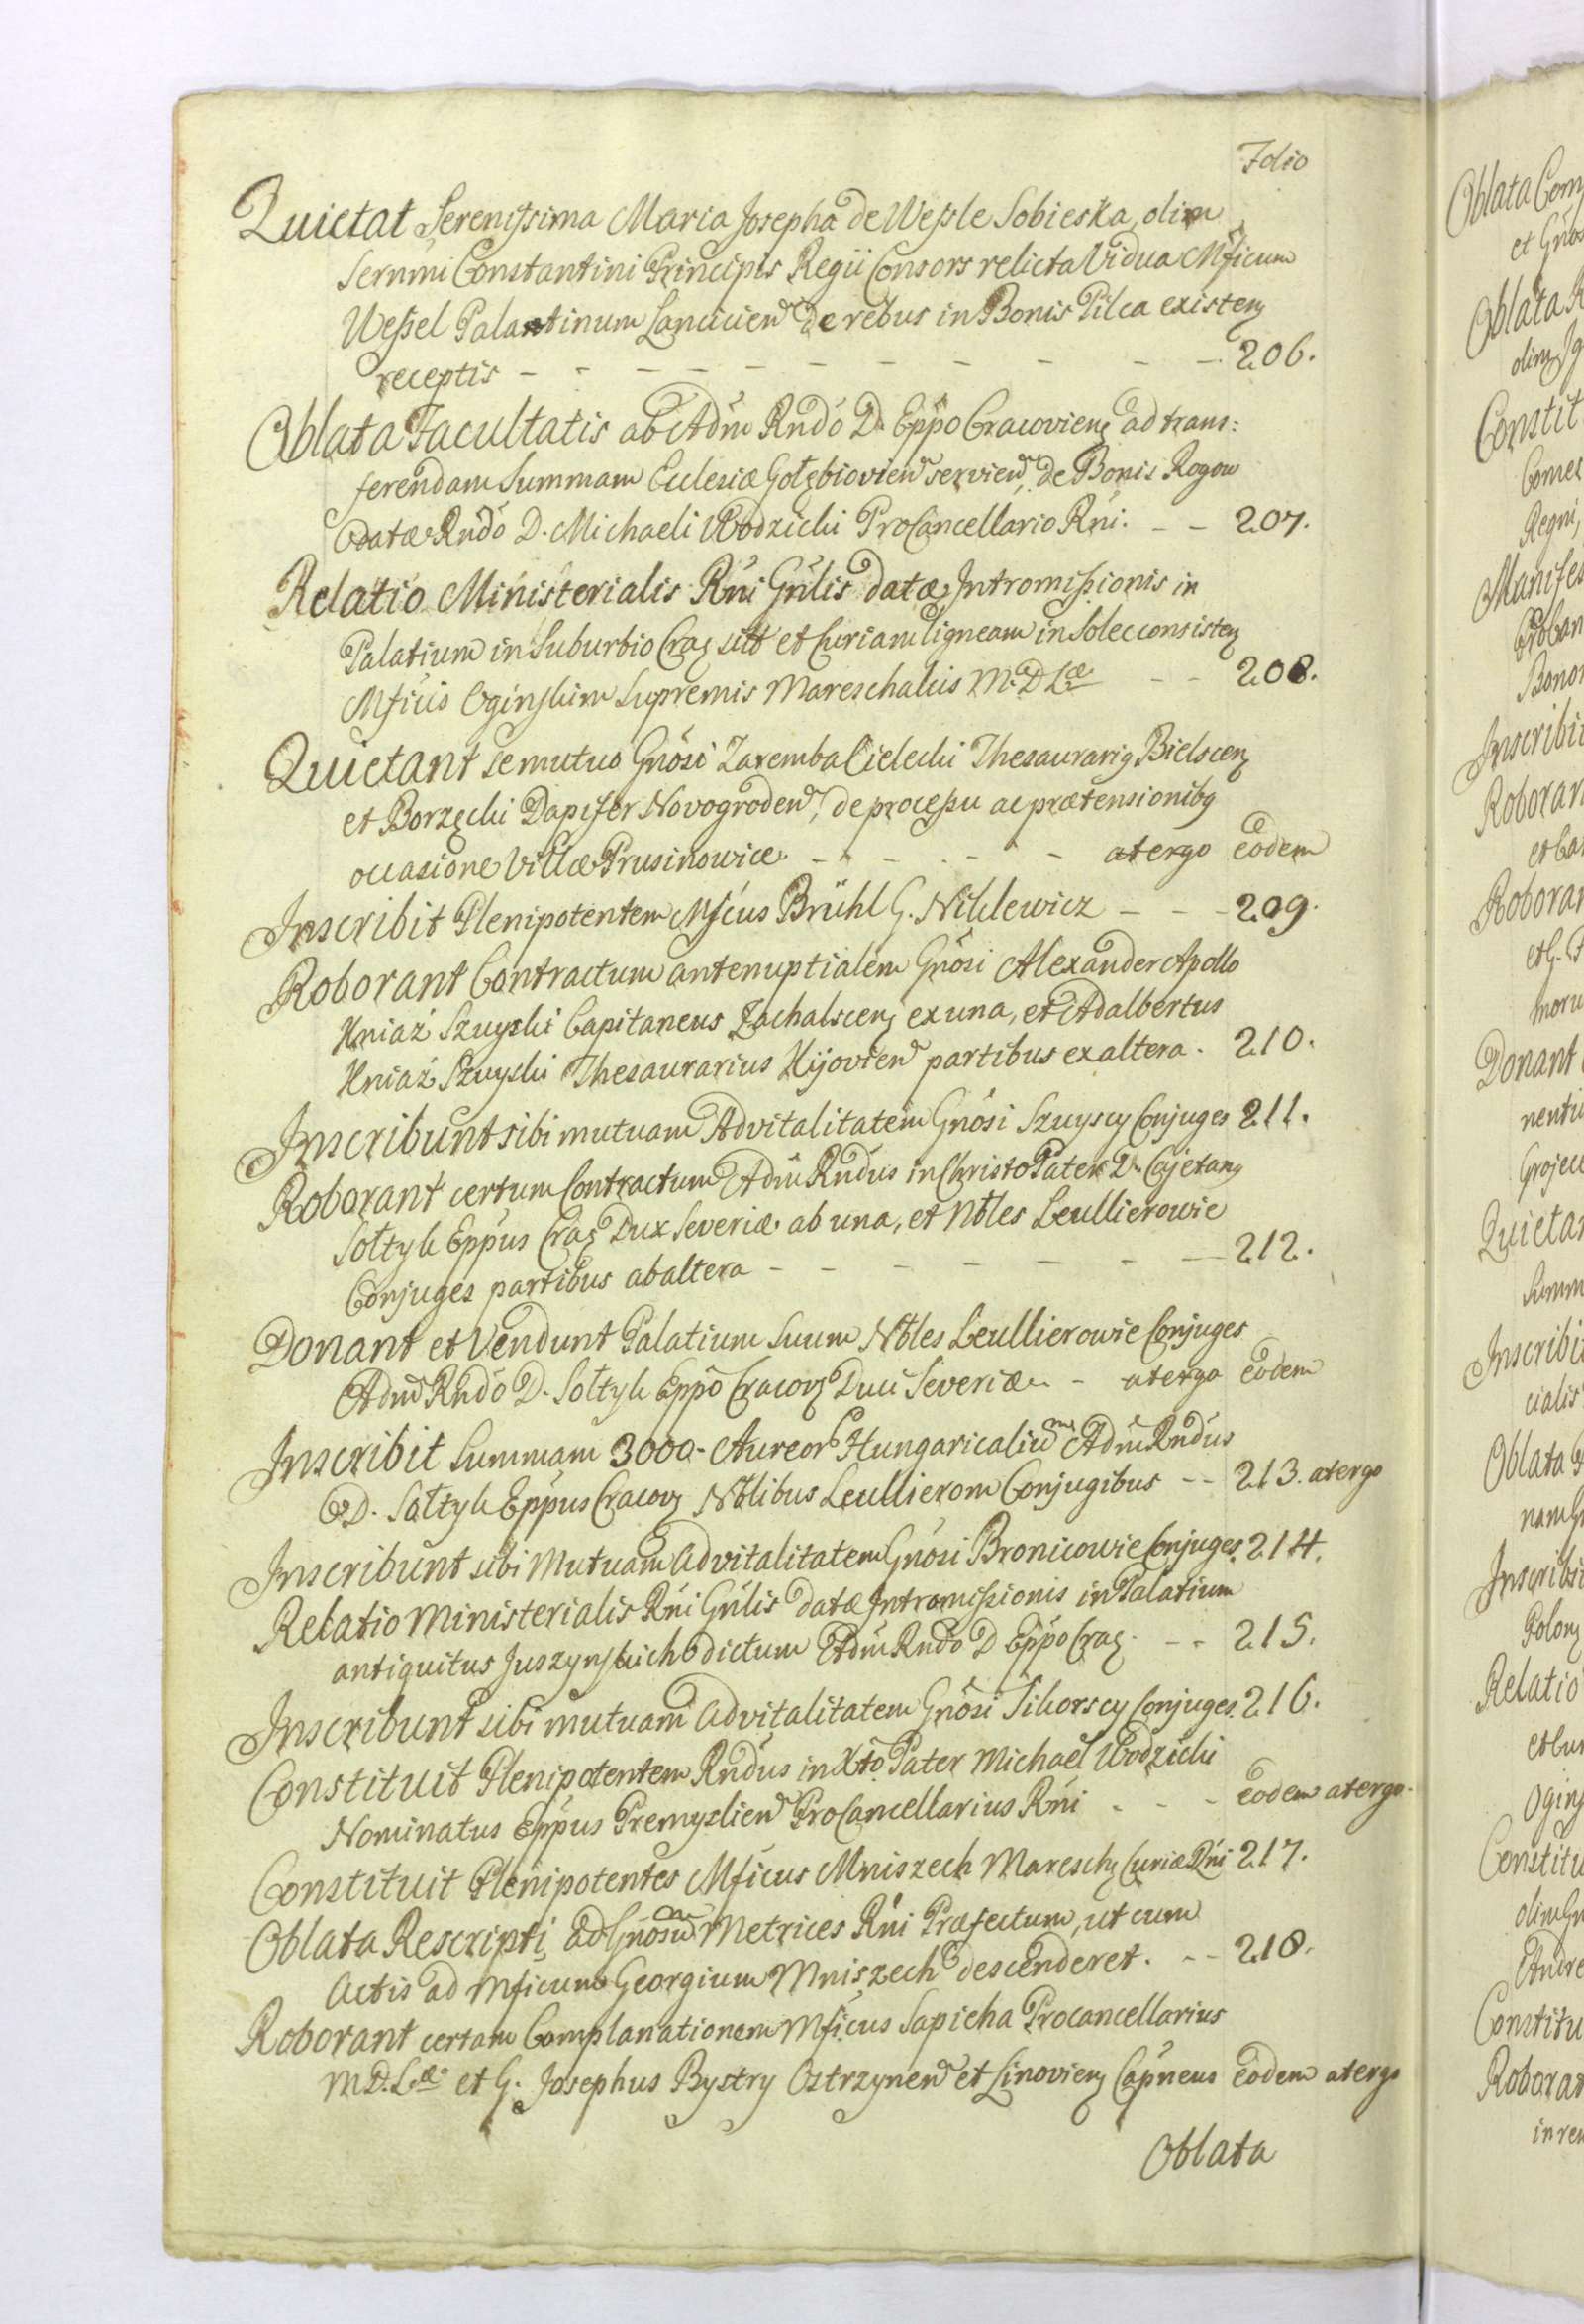 Folio
Quietat Serenissima Maria Josepha de Wessle Sobieska, olim
Sernmi Constantini Principis Regii Consors relicta Vidua Mficum
Wessel Palatinum Lancicien de rebus in Bonis Pilca existen
receptis - - - - - - - - - - 206.
Oblata Facultatis ab Adm Rndo D. Eppo Cracovien ad trans:
ferendam Summam Eclesiæ Gołębiovien servien, de Bonis Rogow
datæ Rndo D. Michaeli Wodzicki ProCancellario Rni. - - 207.
Relatio Ministerialis Rni Gnlis datæ Intromissionis in
Palatium in Suburbio Crac sitt et Curiam ligneam in Solec consisten
Mficis Oginskim Supremis Mareschalcis M. D. Læ - - 208.
Quietant se mutuo Gnosi Zaremba Cielecki Thesaurarig Bielscen
et Borzęcki Dapifer Novogroden, de processu ac prætensionibg
occasione Villæ Prusinowice - - - - - atergo eodem
Inscribit Plenipotentem Mficus Brühl G. Niklewicz - - - 209.
Roborant Contractum antenuptialem Gnosi Alexander Apollo
Kniaź Szuyski Capitaneus Zachalscen ex una, et Adalbertus
Kniaź Szuyski Thesaurarius Kijovien partibus ex altera. 210.
Inscribunt sibi mutuam Advitalitatem Gnosi Szuyscy Conjuges 211.
Roborant certum Contractum Adm Rndus in Christo Pater D. Cajetang
Sołtyk Eppus Crac Dux Severiæ ab una, et Nbles Leullierowie
Conjuges partibus ab altera - - - - - - - 212.
Donant et Vendunt Palatium Suum Nbles Leullierowie Conjuges
Adm Rndo D. Sołtyk Eppo Cracov Duci Severiæ. - atergo eodem
Inscribit Summam 3000. Aureor Hungaricaliu Adm Rndus
D. Sołtyk Eppus Cracov Nblibus Leullierom Conjugibus - - 213. atergo
Inscribunt sibi Mutuam Advitalitatem Gnosi Bronicowie Conjuges. 214.
Relatio Ministerialis Rni Gnlis datæ Intromissionis in Palatium
antiquitus Juszynskich dictum Adm Rndo D Eppo Crac. - - 215.
Inscribunt sibi mutuam Advitalitatem Gnosi Sikorscy Conjuges. 216.
Constituit Plenipotentem Rndus in Xto Pater Michael Wodzicki
Nominatus Eppus Premyslien ProCancellarius Rni - - - eodem atergo.
Constituit Plenipotentes Mficus Mniszech Maresch Curiæ Rni 217.
Oblata Rescripti, ad Gnosum Metrices Rni Præfectum, ut cum
Actis ad Mficum Georgium Mniszech descenderet. - - 218.
Roborant certam Complanationem Mficus Sapieha Procancellarius
M.D.Læ et G. Josephus Bystry Ostrzynen et Linovien Capneus eodem atergo
Oblata
Oblata
et
Oblata
olim
Constit
Regni,
Manifes
Inscribi
Roboran
Roboran
Donant
Quietan
Summ
Inscribi
cialis
Oblata
Inscribi
Polon
Relatio
Constitu
olim
Constitu
Roboran